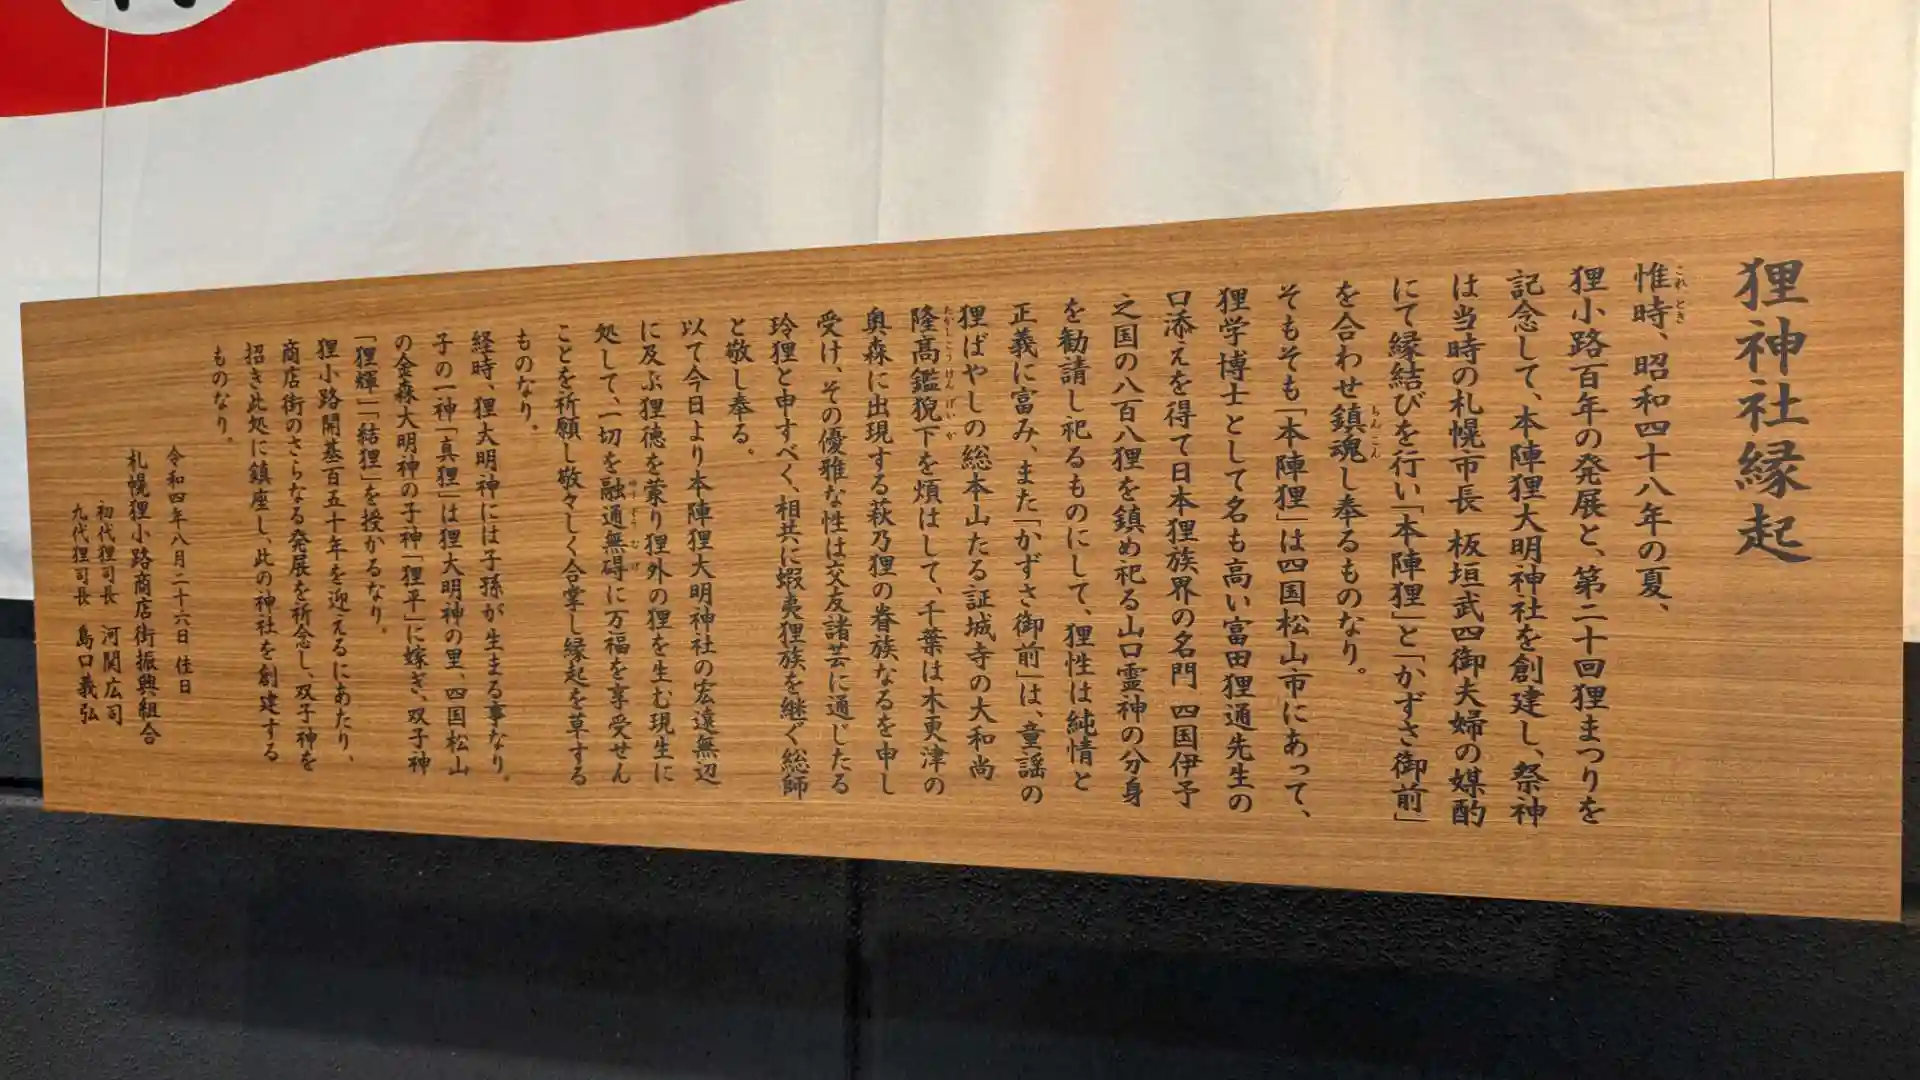 狸神社縁起
惟時、昭和四十八年の夏、
狸小路百年の発展と、第二十回狸まつりを
記念して、本陣狸大明神社を創建し、祭神
は当時の札幌市長 板垣武四御夫婦の媒酌
にて縁結びを行い「本陣狸」と「かずさ御前」
を合わせ鎮魂し奉るものなり。
そもそも「本陣狸」は四国松山市にあって、
狸学博士として名も高い富田狸通先生の
口添えを得て日本狸族界の名門 四国伊予
之国の八百八狸を鎮め祀る山口霊神の分身
を勧請し祀るものにして、狸性は純情と
正義に富み、また「かずさ御前」は、童謡の
狸ばやしの総本山たる証城寺の大和尚
隆高鑑貎下を煩はして、千葉は木更津の
奥森に出現する萩乃狸の眷族なるを申し
受け、その優雅な性は交友諸芸に通じたる
玲狸と申すべく、相共に蝦夷狸族を継ぐ総師
と敬し奉る。
以て今日より本陣狸大明神社の宏遠無辺
に及ぶ狸徳を蒙り狸外の狸を生む現生に
処して、一切を融通無碍に万福を享受せん
ことを祈願し敬々しく合掌し縁起を草する
ものなり。
経時、狸大明神には子孫が生まる事なり。
子の一神「真狸」は狸大明神の里、四国松山
の金森大明神の子神「狸平」に嫁ぎ、双子神
「狸輝」「結狸」を授かるなり。
狸小路開基百五十年を迎えるにあたり、
商店街のさらなる発展を祈念し、双子神を
招き此処に鎮座し、此の神社を創建する
ものなり。
令和四年八月二十六日 佳日
札幌狸小路商店街振興組合
初代狸司長 河関広司
九代狸司長 島口義弘